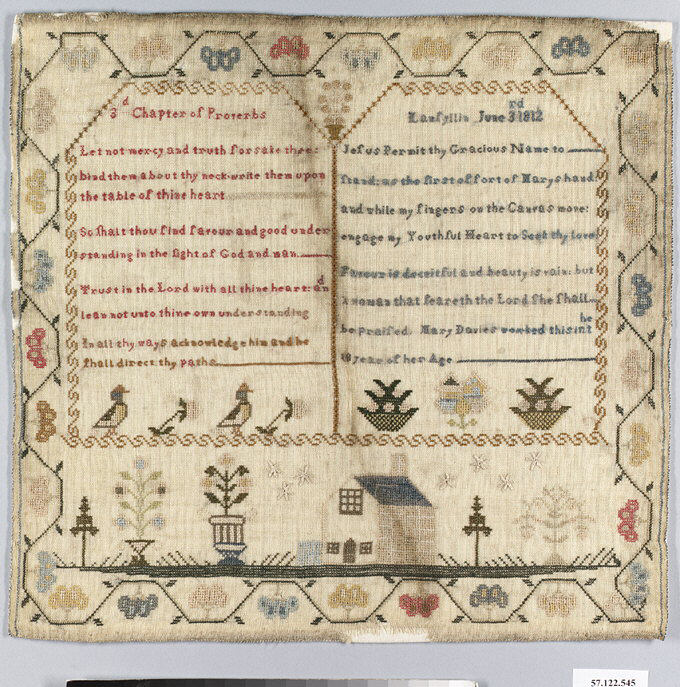 3d Chapter of Proverbs
Let not mercy and truth forsake thee:
bind them about thy neck write them upon
the table of thine heart
So shalt thou find favour and good under
standing in the sight of God and man
Trust in the Lord with all thine heart: and
lean not unto thine own understanding
In all thy ways acknowledge him and he
shall direct thy paths
Lanfyllin June 3rd 1812
Jesus Permit thy Gracious Name to
stand: as the first effort of Marys hand
and while my fingers on the Canvas move:
engage my Youthful Heart to Seek thy love
Favour is deceitful and beauty is vain: but
A woman that feareth the Lord she shall
be praised. Mary Davies worked this in the
year of her Age
57.122.545